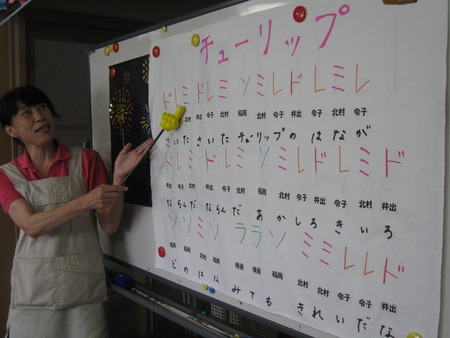 チューリップ
ドレミドレミ ソミレドレミレ
北村 井出 令子 北村 福岡 北村 令子 井出 令子 北村 令子
さいた さいた チューリップの はなが
ドレミドレミ ソミレドレミド
井出 令子 北村 井出 令子 北村 福岡 北村 令子 井出 令子 北村 井出
ならんだ ならんだ あか しろ きいろ
ソソミソ ララソ ミミレレド
福岡 福岡 北村 福岡 福岡 北村 北村 令子 令子 井出
どのはな みても きれいだな